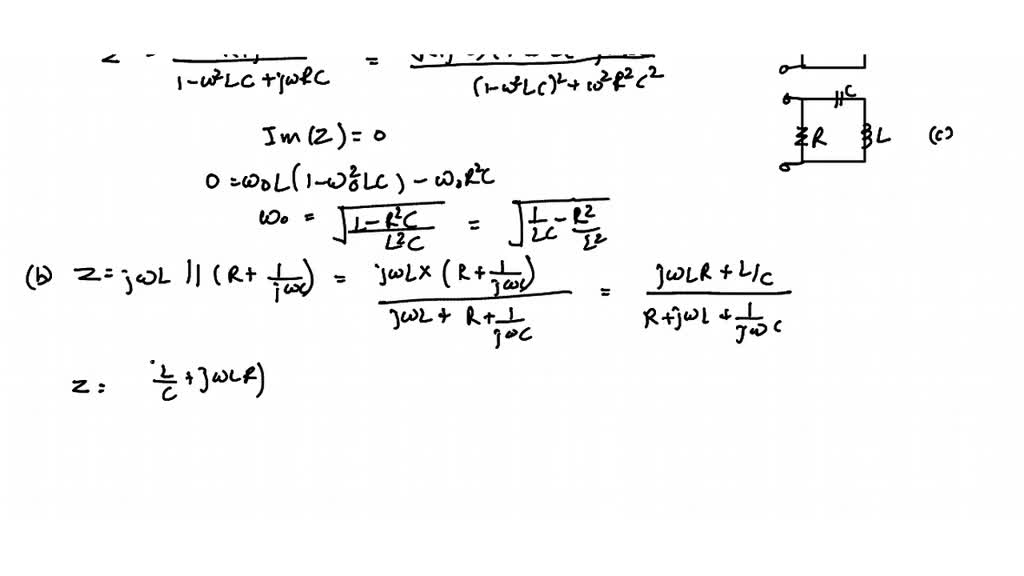 1-ω²LC+jωRC = (1-ω²LC)²+ω²R²C²
C
Im(Z)=0
R L (c)
0=ω₀L(1-ω₀²LC)-ω₀R²C
ω₀ = √((L-R²C)/(L²C)) = √(1/(LC) - R²/L²)
(b) Z=jωL || (R+ 1/(jωC)) = (jωL×(R+1/(jωC)))/(jωL+R+1/(jωC)) = (jωLR+L/C)/(R+jωL+1/(jωC))
Z= (L/C+jωLR)